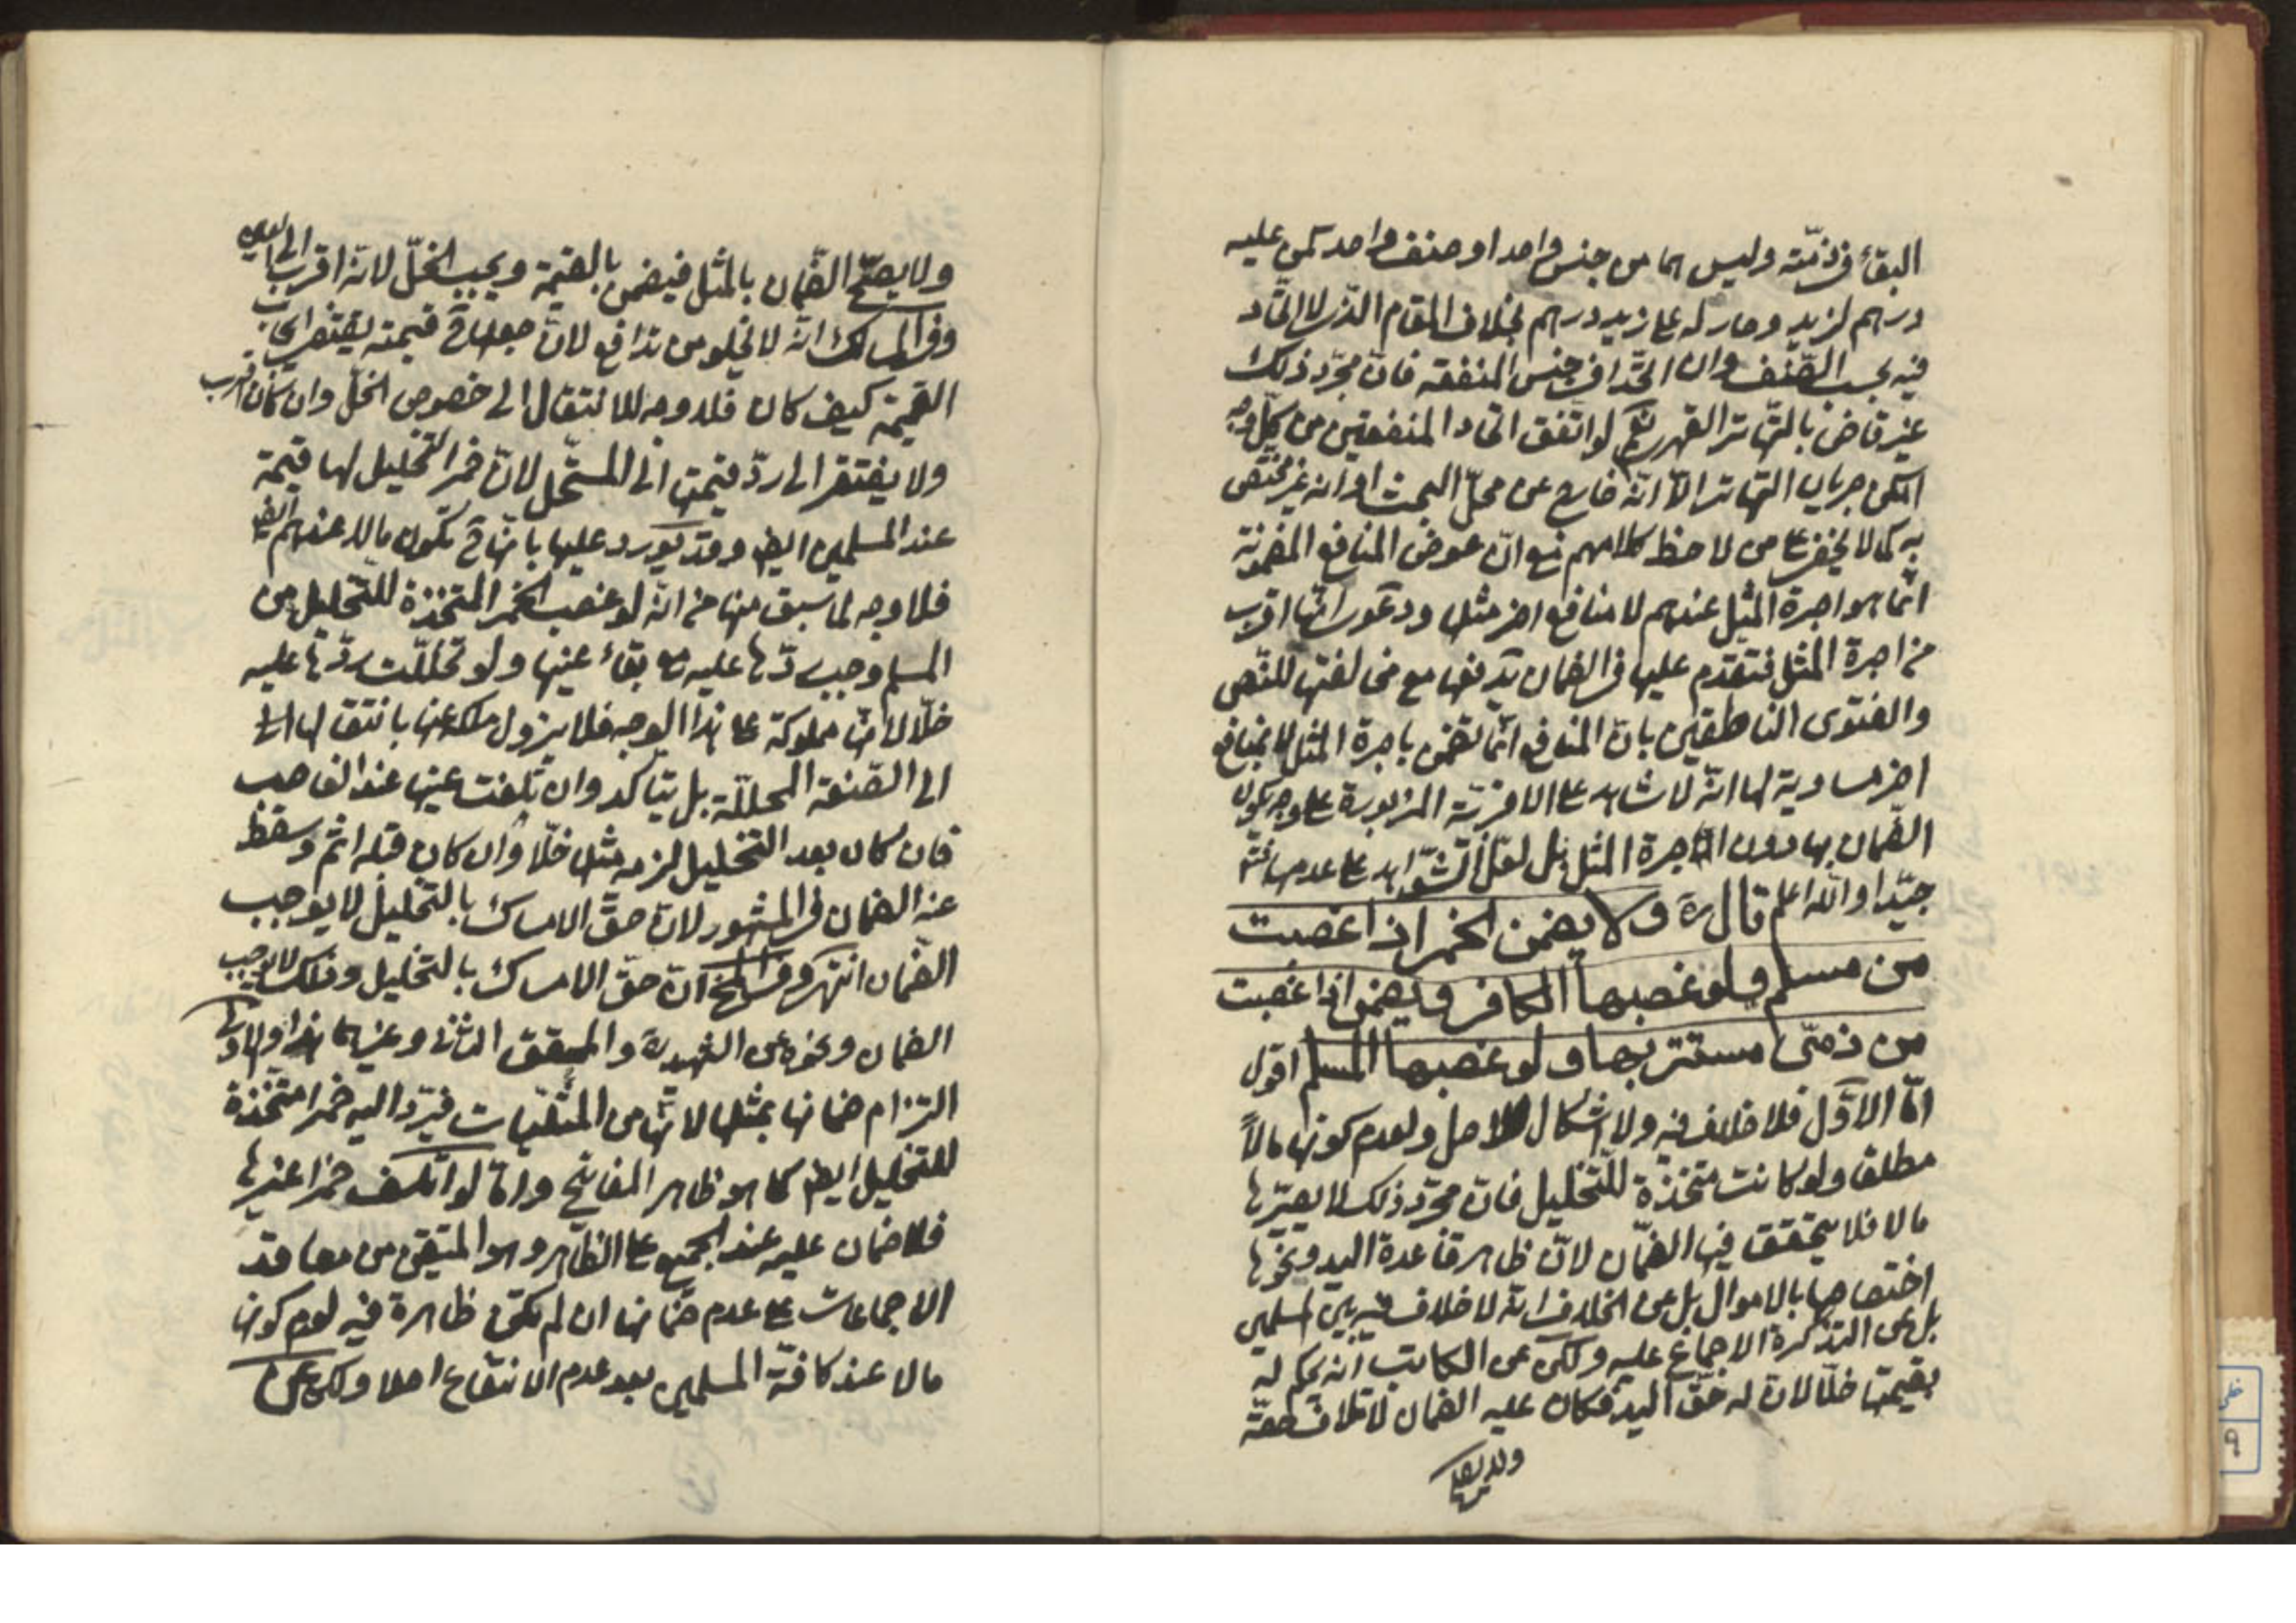 البقاء في ذمّته وليس هما من جنس واحد او صنف واحد كمن عليه
درهم لزيد وصار له على زيد درهم بخلاف المقام الذي لا اتحاد
فيه بحسب الصّنف وان اتّحدا في جنس المنفعة فان مجرّد ذلك
غير قاض بالتّهاتر القهري نعم لو اتّفق اتحاد المنفعتين من كلّ وجه
امكن جريان التهاتر الّا انّه خارج عن محلّ البحث او انه غير مختص
به كما لا يخفى على من لاحظ كلامهم مع انّ عوض المنافع المضمونة
انّما هو اجرة المثل عندهم لا منافع اخر مثلها ودعوى انّها اقرب
من اجرة المثل فتقدم عليها في الضمان يدفعها مع مخالفتها للنّص
والفتوى الناطقين بانّ المنافع انّما تضمن باجرة المثل لا بمنافع
اخر مساوية لها انّه لا شاهد على الاقربيّة المزبورة على وجه يكون
الضّمان بها دون الاجرة المثل بل لعلّ الشّواهد على عدمها فتأمّل
جيّدا واللّه اعلم قال ره ولا يضمن الخمر اذا غصبت
من مسلم ولو غصبها الكافر ويضمن اذا غصبت
من ذمّي مستتر بها ولو غصبها المسلم اقول
امّا الاوّل فلا خلاف فيه ولا اشكال للاصل ولعدم كونها مالاً
مطلقا ولو كانت متخذة للتّخليل فانّ مجرّد ذلك لا يصيّرها
مالا فلا يتحقق فيها الضّمان لانّ ظاهر قاعدة اليد ونحوها
اختصاصها بالاموال بل عن الخلاف انّه لا خلاف فيه بين المسلمين
بل عن التذكرة الاجماع عليه ولكن عن الكاتب انّه يحكم له
بقيمتها خلّا لانّ له حقّ اليد فكان عليه الضمان لاتلاف حقّه
ولا يصحّ
ولا يصحّ الضّمان بالمثل فيضمن بالقيمة ويجب الخلّ لانّه اقرب الى العين
وفي المسالك انّه لا يخلو من تدافع لان جعلها ح قيمته يقتضي ايجاب
القيمة كيف كان فلا وجه للانتقال الى خصوص الخلّ وان كان اقرب
ولا يفتقر الى ردّ قيمتها الى المستحل لانّ خمر التخليل لها قيمة
عند المسلمين ايضا وقد يورد عليها بانّها ح تكون مالا عندهم ايضا
فلا وجه لما سبق منها من انّه لو غصب الخمر المتخذة للتّخليل من
المسلم وجب ردّها عليه مع بقاء عينها ولو تخللّت ردّها عليه
خلّا لانّها مملوكة على هذا الوجه فلا يزول ملكه عنها بانتقالها
الى الصّفة المحلّلة بل يتأكد وان تلفت عينها عند الغاصب
فان كان بعد التخليل لزمه مثلها خلّا وان كان قبله اثم وسقط
عنه الضمان في المشهور لانّ حقّ الامساك بالتخليل لا يوجب
الضّمان انتهى وفي انّ حقّ الامساك بالتخليل وذلك لا يوجب
الضمان ونحوه عن الشهيد ره والمحقق الثاني وغيرهما
التزام ضمانها بمثلها لانّها من المثليّات فيردّ اليه خمرا متّخذة
للتخليل ايضا كما هو ظاهر المفاتيح وامّا لو اتلف خمرا غيرها
فلا ضمان عليه عند الجميع على الظّاهر وهو المتيقن من معاقد
الاجماعات على عدم ضمانها ان لم يكن ظاهرة فيه لعدم كونها
مالا عند كافّة المسلمين بعد عدم الانتفاع اصلا ولكن عن